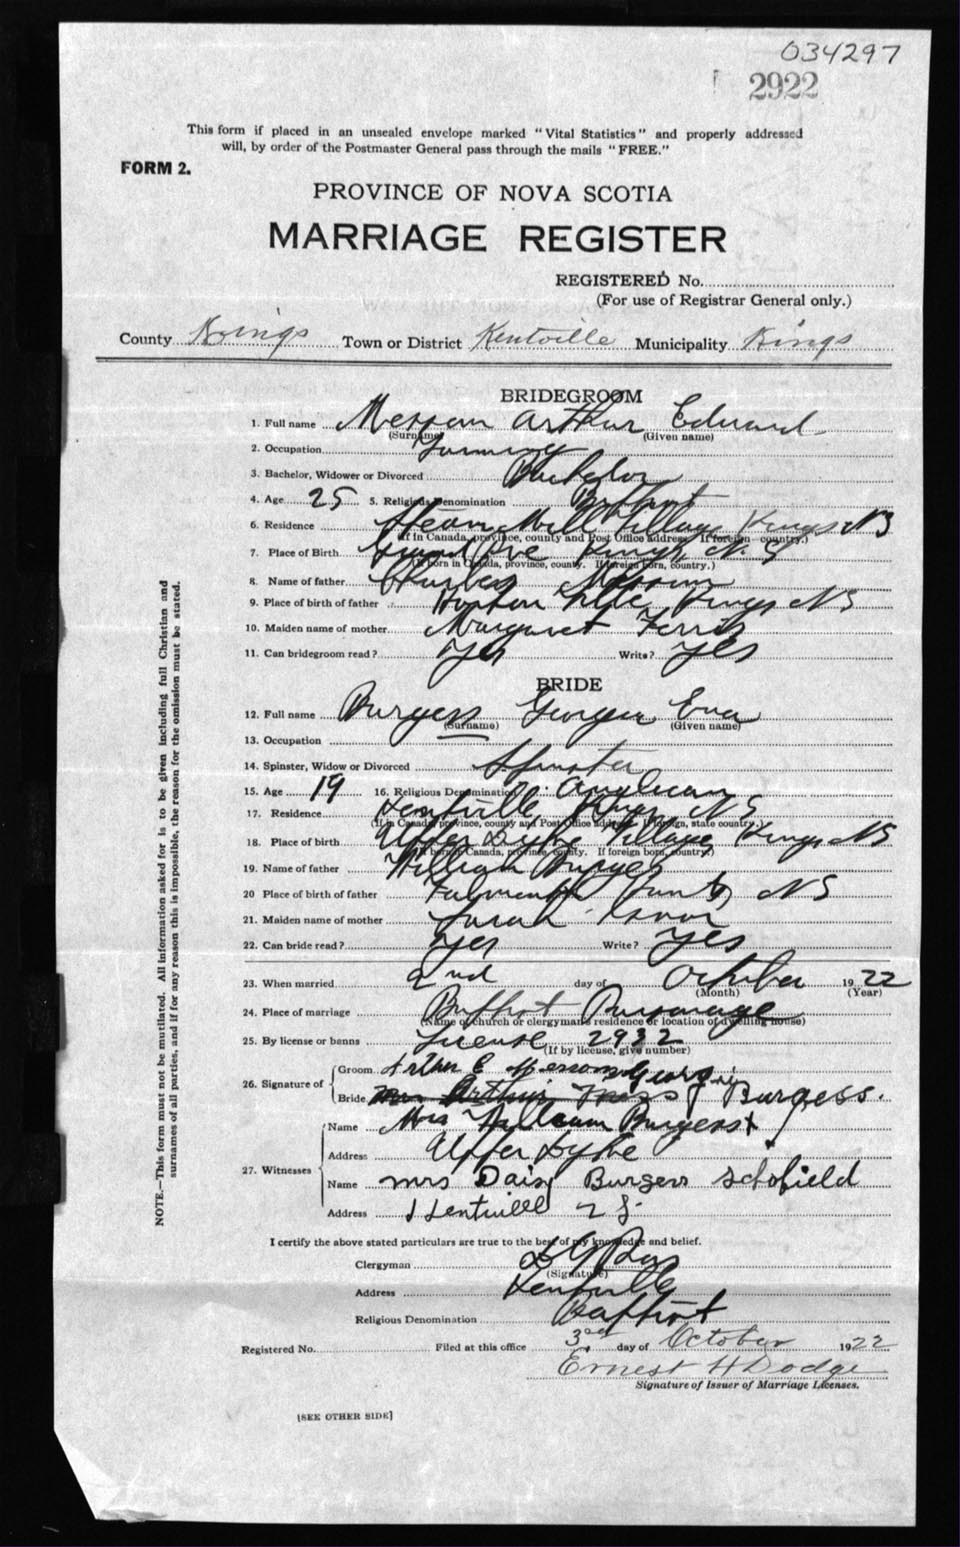 034297
2922
This form if placed in an unsealed envelope marked "Vital Statistics" and properly addressed
will, by order of the Postmaster General pass through the mails "FREE."
FORM 2.
PROVINCE OF NOVA SCOTIA
MARRIAGE REGISTER
REGISTERED No.
(For use of Registrar General only.)
County Kings Town or District Kentville Municipality Kings
BRIDEGROOM
1. Full name Messom Arthur Edward
(Surname) (Given name)
2. Occupation Farming
3. Bachelor, Widower or Divorced Bachelor
4. Age 25 5. Religious Denomination Baptist
6. Residence Steam Mill Village Kings NS
(If in Canada, province, county and Post Office address. If foreign country.)
7. Place of Birth Grand Pre Kings N.S
(If born in Canada, province, county. If foreign born, country.)
8. Name of father Charles Messom
9. Place of birth of father Horton Kings NS
10. Maiden name of mother Margaret Ferris
11. Can bridegroom read? Yes Write? Yes
BRIDE
12. Full name Burgess Georgia Eva
(Surname) (Given name)
13. Occupation
14. Spinster, Widow or Divorced Spinster
15. Age 19 16. Religious Denomination Anglican
17. Residence Kentville, Kings NS
(If in Canada, province, county and Post Office address. If foreign, state country.)
18. Place of birth Upper Dyke Village Kings NS
(If born in Canada, province, county. If foreign born, country.)
19. Name of father William Burgess
20 Place of birth of father Falmouth NS
21. Maiden name of mother Sarah
22. Can bride read? Yes Write? Yes
23. When married 2nd day of October 1922
(Month) (Year)
24. Place of marriage Baptist Parsonage
(Name of church or clergyman's residence or location of dwelling house)
25. By license or banns License 2932
(If by license, give number)
26. Signature of Groom Arthur E Messom
Bride Georgie Burgess.
27. Witnesses Name Mrs William Burgess
Address Upper Dyke
Name Mrs Daisy Burgess Schofield
Address Kentville N S
I certify the above stated particulars are true to the best of my knowledge and belief.
Clergyman
(Signature)
Address Kentville
Religious Denomination Baptist
Registered No. Filed at this office 3rd day of October 1922
Ernest H Dodge
Signature of Issuer of Marriage Licenses.
[SEE OTHER SIDE]
NOTE.—This form must not be mutilated. All information asked for is to be given including full Christian and
surnames of all parties, and if for any reason this is impossible, the reason for the omission must be stated.